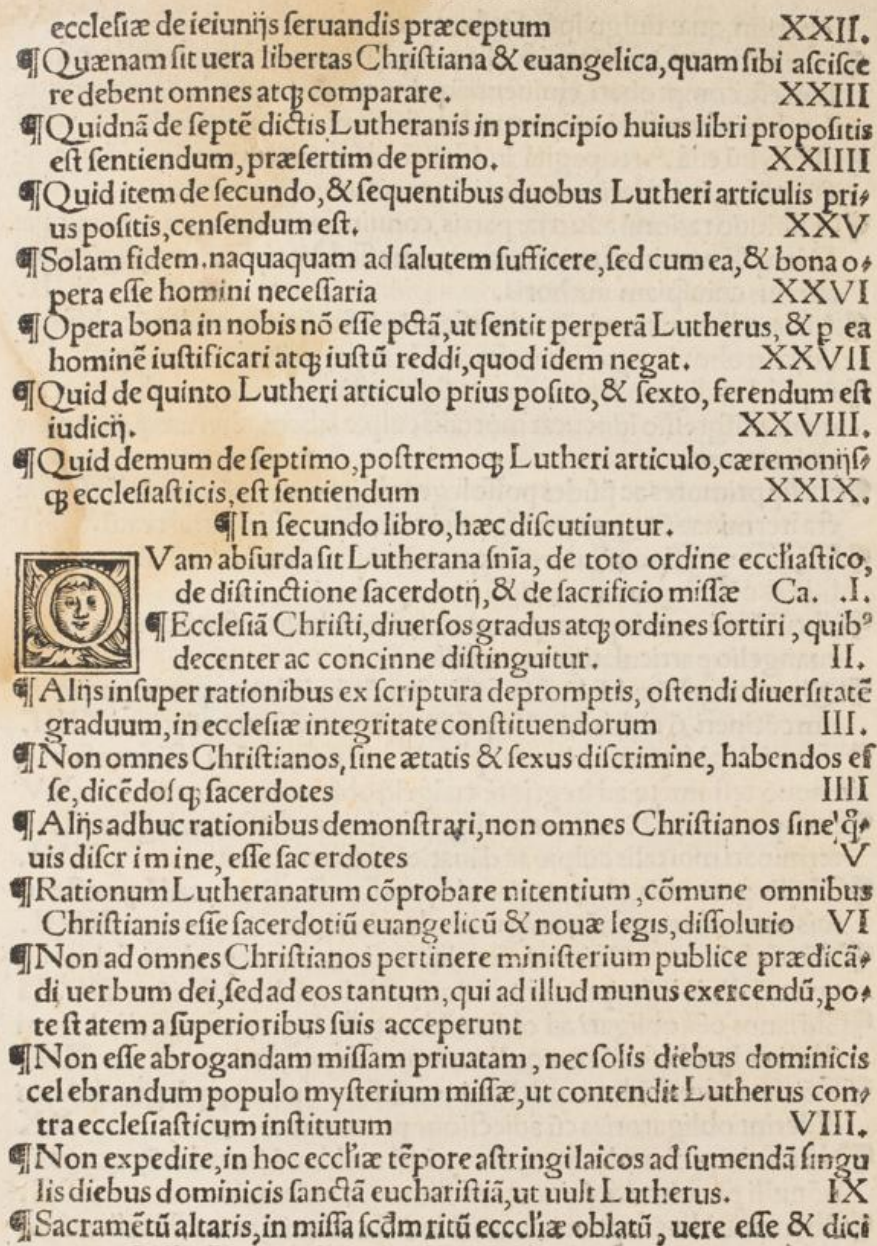 ecclesiæ de ieiunijs seruandis præceptum XXII.
¶Quænam sit uera libertas Christiana & euangelica, quam sibi ascisce
re debent omnes atq; comparare. XXIII
¶Quidnã de septẽ dictis Lutheranis in principio huius libri propositis
est sentiendum, præsertim de primo. XXIIII
¶Quid item de secundo, & sequentibus duobus Lutheri articulis pri-
us positis, censendum est. XXV
¶Solam fidem.naquaquam ad salutem sufficere, sed cum ea, & bona o-
pera esse homini necessaria XXVI
¶Opera bona in nobis nõ esse pctã, ut sentit perperã Lutherus, & p ea
hominẽ iustificari atq; iustũ reddi, quod idem negat. XXVII
¶Quid de quinto Lutheri articulo prius posito, & sexto, ferendum est
iudicij. XXVIII.
¶Quid demum de septimo, postremoq; Lutheri articulo, cæremonijs-
q; ecclesiasticis, est sentiendum XXIX.
¶In secundo libro, hæc discutiuntur.
QVam absurda sit Lutherana snĩa, de toto ordine eccl'iastico,
de distinctione sacerdotij, & de sacrificio missæ Ca. .I.
¶Ecclesiã Christi, diuersos gradus atq; ordines sortiri, quibꝰ
decenter ac concinne distinguitur. II.
¶Alijs insuper rationibus ex scriptura depromptis, ostendi diuersitatẽ
graduum, in ecclesiæ integritate constituendorum III.
¶Non omnes Christianos, sine ætatis & sexus discrimine, habendos es
se, dicẽdosq; sacerdotes IIII
¶Alijs adhuc rationibus demonstrari, non omnes Christianos sine q̃-
uis discrimine, esse sacerdotes V
¶Rationum Lutheranarum cõprobare nitentium, cõmune omnibus
Christianis esse sacerdotiũ euangelicũ & nouæ legis, dissolutio VI
¶Non ad omnes Christianos pertinere ministerium publice prædicã-
di uerbum dei, sed ad eos tantum, qui ad illud munus exercendũ, po-
testatem a superioribus suis acceperunt
¶Non esse abrogandam missam priuatam, nec solis diebus dominicis
celebrandum populo mysterium missæ, ut contendit Lutherus con-
tra ecclesiasticum institutum VIII.
¶Non expedire, in hoc eccl'iæ tẽpore astringi laicos ad sumendã singu
lis diebus dominicis sanctã eucharistiã, ut uult Lutherus. IX
¶Sacramẽtũ altaris, in missa scdm ritũ ecccl'iæ oblatũ, uere esse & dici